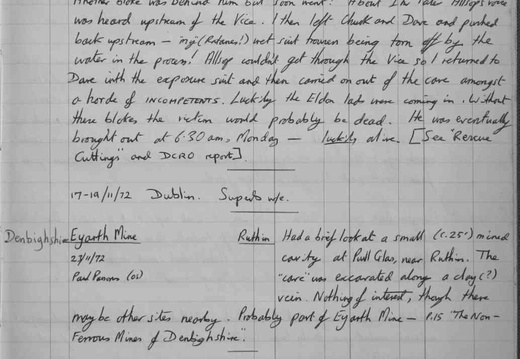 Another bloke was behind him but soon went! About 1 hr later Allsop's voice
was heard upstream of the Vice. I then left Chuck and Dave and pushed
back upstream — my (Rotanes!) wet suit trousers being torn off by the
water in the process! Allsop couldn't get through the Vice so I returned to
Dave with the exposure suit and then carried on out of the cave amongst
a horde of INCOMPETENTS. Luckily the Eldon lads were coming in. Without
these blokes the victim would probably be dead. He was eventually
brought out at 6.30 am, Monday — luckily alive. [See "Rescue
Cuttings" and DCRO report].
17-19/11/72 Dublin. Superb w/e.
Denbighshire Eyarth Mine Ruthin Had a brief look at a small (c.25') mined
27/11/72 cavity at Pwll Glas, near Ruthin. The
Paul Parsons (O5) "cave" was excavated along a clay (?)
vein. Nothing of interest, though there
may be other sites nearby. Probably part of Eyarth Mine — P.15 "The Non-
Ferrous Mines of Denbighshire".